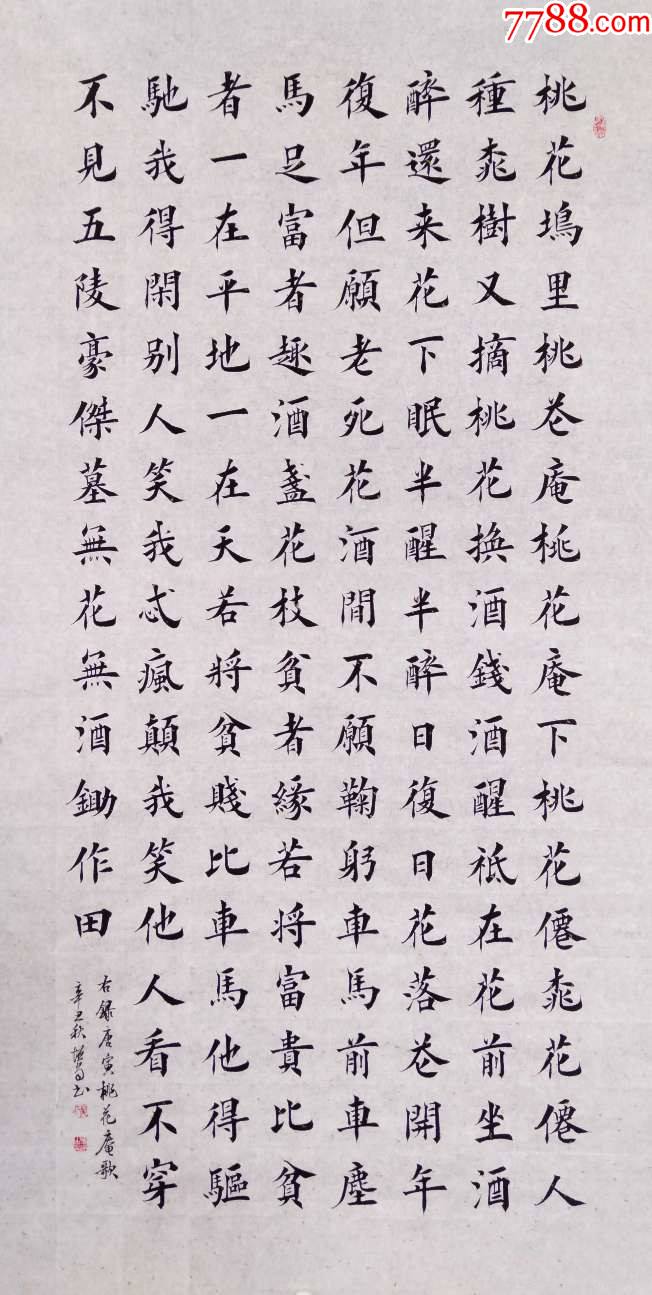 桃花塢里桃花庵桃花庵下桃花僊桃花僊人
種桃樹又摘桃花換酒錢酒醒祗在花前坐酒
醉還来花下眠半醒半醉日復日花落花開年
復年但願老死花酒間不願鞠躬車馬前車塵
馬足富者趣酒盞花枝貧者緣若将富貴比貧
者一在平地一在天若將貧賤比車馬他得驅
馳我得閑别人笑我忒瘋顛我笑他人看不穿
不見五陵豪傑墓無花無酒鋤作田
右録唐寅桃花庵歌
辛丑秋书
7788.com